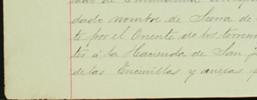 dado nombre de Sierra de
te por el Oriente de los terrenos
tes á la Hacienda de San
de las Encinillas y anexas